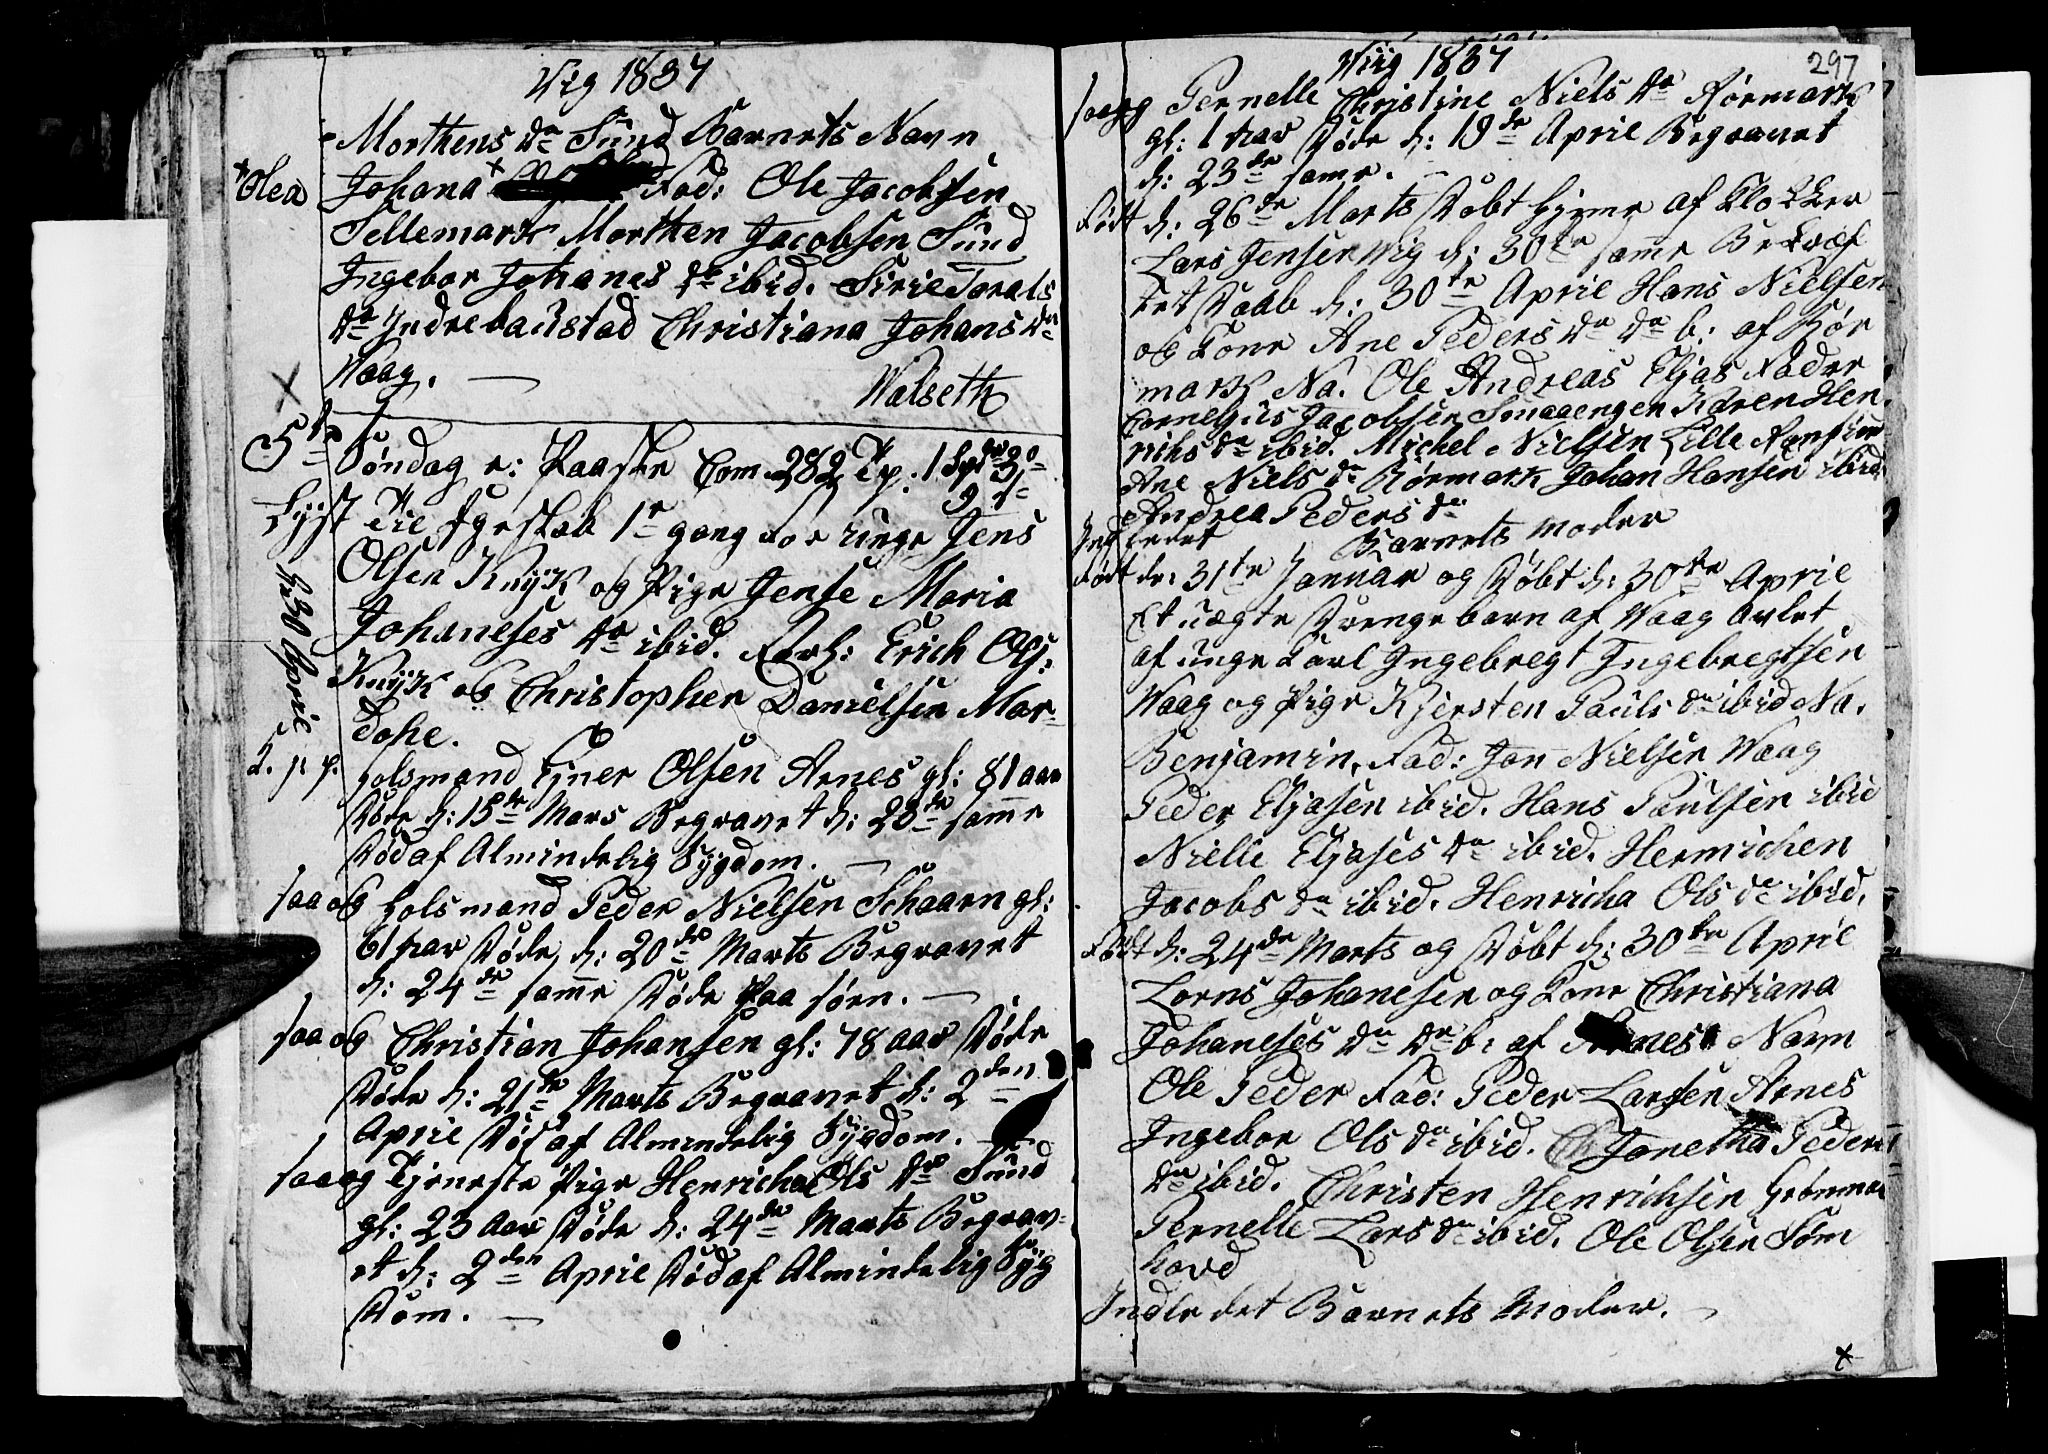 Vig 1837
Morthens Da Sund Barnets Navn
*Olea Johana* Fad: Ole Jacobsen
Sellemark Morthen Jacobsen Sund
Ingebor Johanes Da ibid. Sirie Torals
Da Indrebaustad Christiana Johans Da
Waag.
Walseth
5te Søndag e: Paaske Com 282
Lyst Til Ægteskab 1e gang for unge Jens
Olsen Knÿk og Pige Jense Maria
Johaneses Da ibid. Forl: Erich Ols:
Knÿk og Christopher Danielsen Mar-
dohe.
d: 30 Aprie
L. p. p. Holsmand Ejner Olsen Arnes gl: 81 aar
Døde d: 15de Mars Begravet d: 23de samme
Død af Almindelig Sygdom.
saa og Holsmand Peder Nielsen Schaarn gl:
61 aar Døde d: 20de Marts Begravet
d: 24de samme Døde Paa søen.
saa og Christian Johansen gl: 78 aar Døde
Døde d: 21de Marts Begravet d: 2den
Aprie Død af Almindelig Sygdom.
saa og Tjeneste Pige Henricha Ols Da Sund
gl: 23 Aar Døde d: 24de Marts Begrav-
et d: 2den Aprie Død af Almindelig Syg
Dom.
Wiig 1837
297
saa og Pernelle Christine Niels Da Rørmark
gl: 1 aar Døde d: 18de April Begravet
d: 23de samme.
Født d: 26de Marts Døbt hjeme af Klokker
Lars Jensen Wig d: 30te samme Bekræf
tet Daab d: 30te April Hans Nielsen
og Kone Ane Peders Da Da b: af Rør
mark Na. Ole Andreas Eljas Fader
Cornelius Jacobsen Smaaengen Karen Hen
richs Da ibid. Michel Nielsen Lille
Ane Niels Da Rørmark Johan Hansen ibid
Andrea Peders Da
Indledet Barnets Moder
Født de: 31te Januar og Døbt d: 30te Aprie
Et uægte Drengebarn af Waag Avlet
af unge Karl Ingebregt Ingebregtsen
Waag og Pige Kjersten Pauls Da ibid Na.
Benjamin, Fad: Jon Nielsen Waag
Peder Eljasen ibid. Hans Paulsen ibid
Nielle Eljases Da ibid. Hermichen
Jacobs Da ibid. Henricha Ols Da ibid.
Født d: 24de Marts og Døbt d: 30te April
Lorns Johanesen og Kone Christiana
Johaneses Da De b: af Arnes Navn
Ole Peder Fad: Peder Larsen Arnes
Ingebor Ols Da ibid. Janetha Peders
Da ibid. Christen Henrichsen
Pernelle Lars Da ibid. Ole Olsen Søm
hovd
Indledet Barnets Moder.